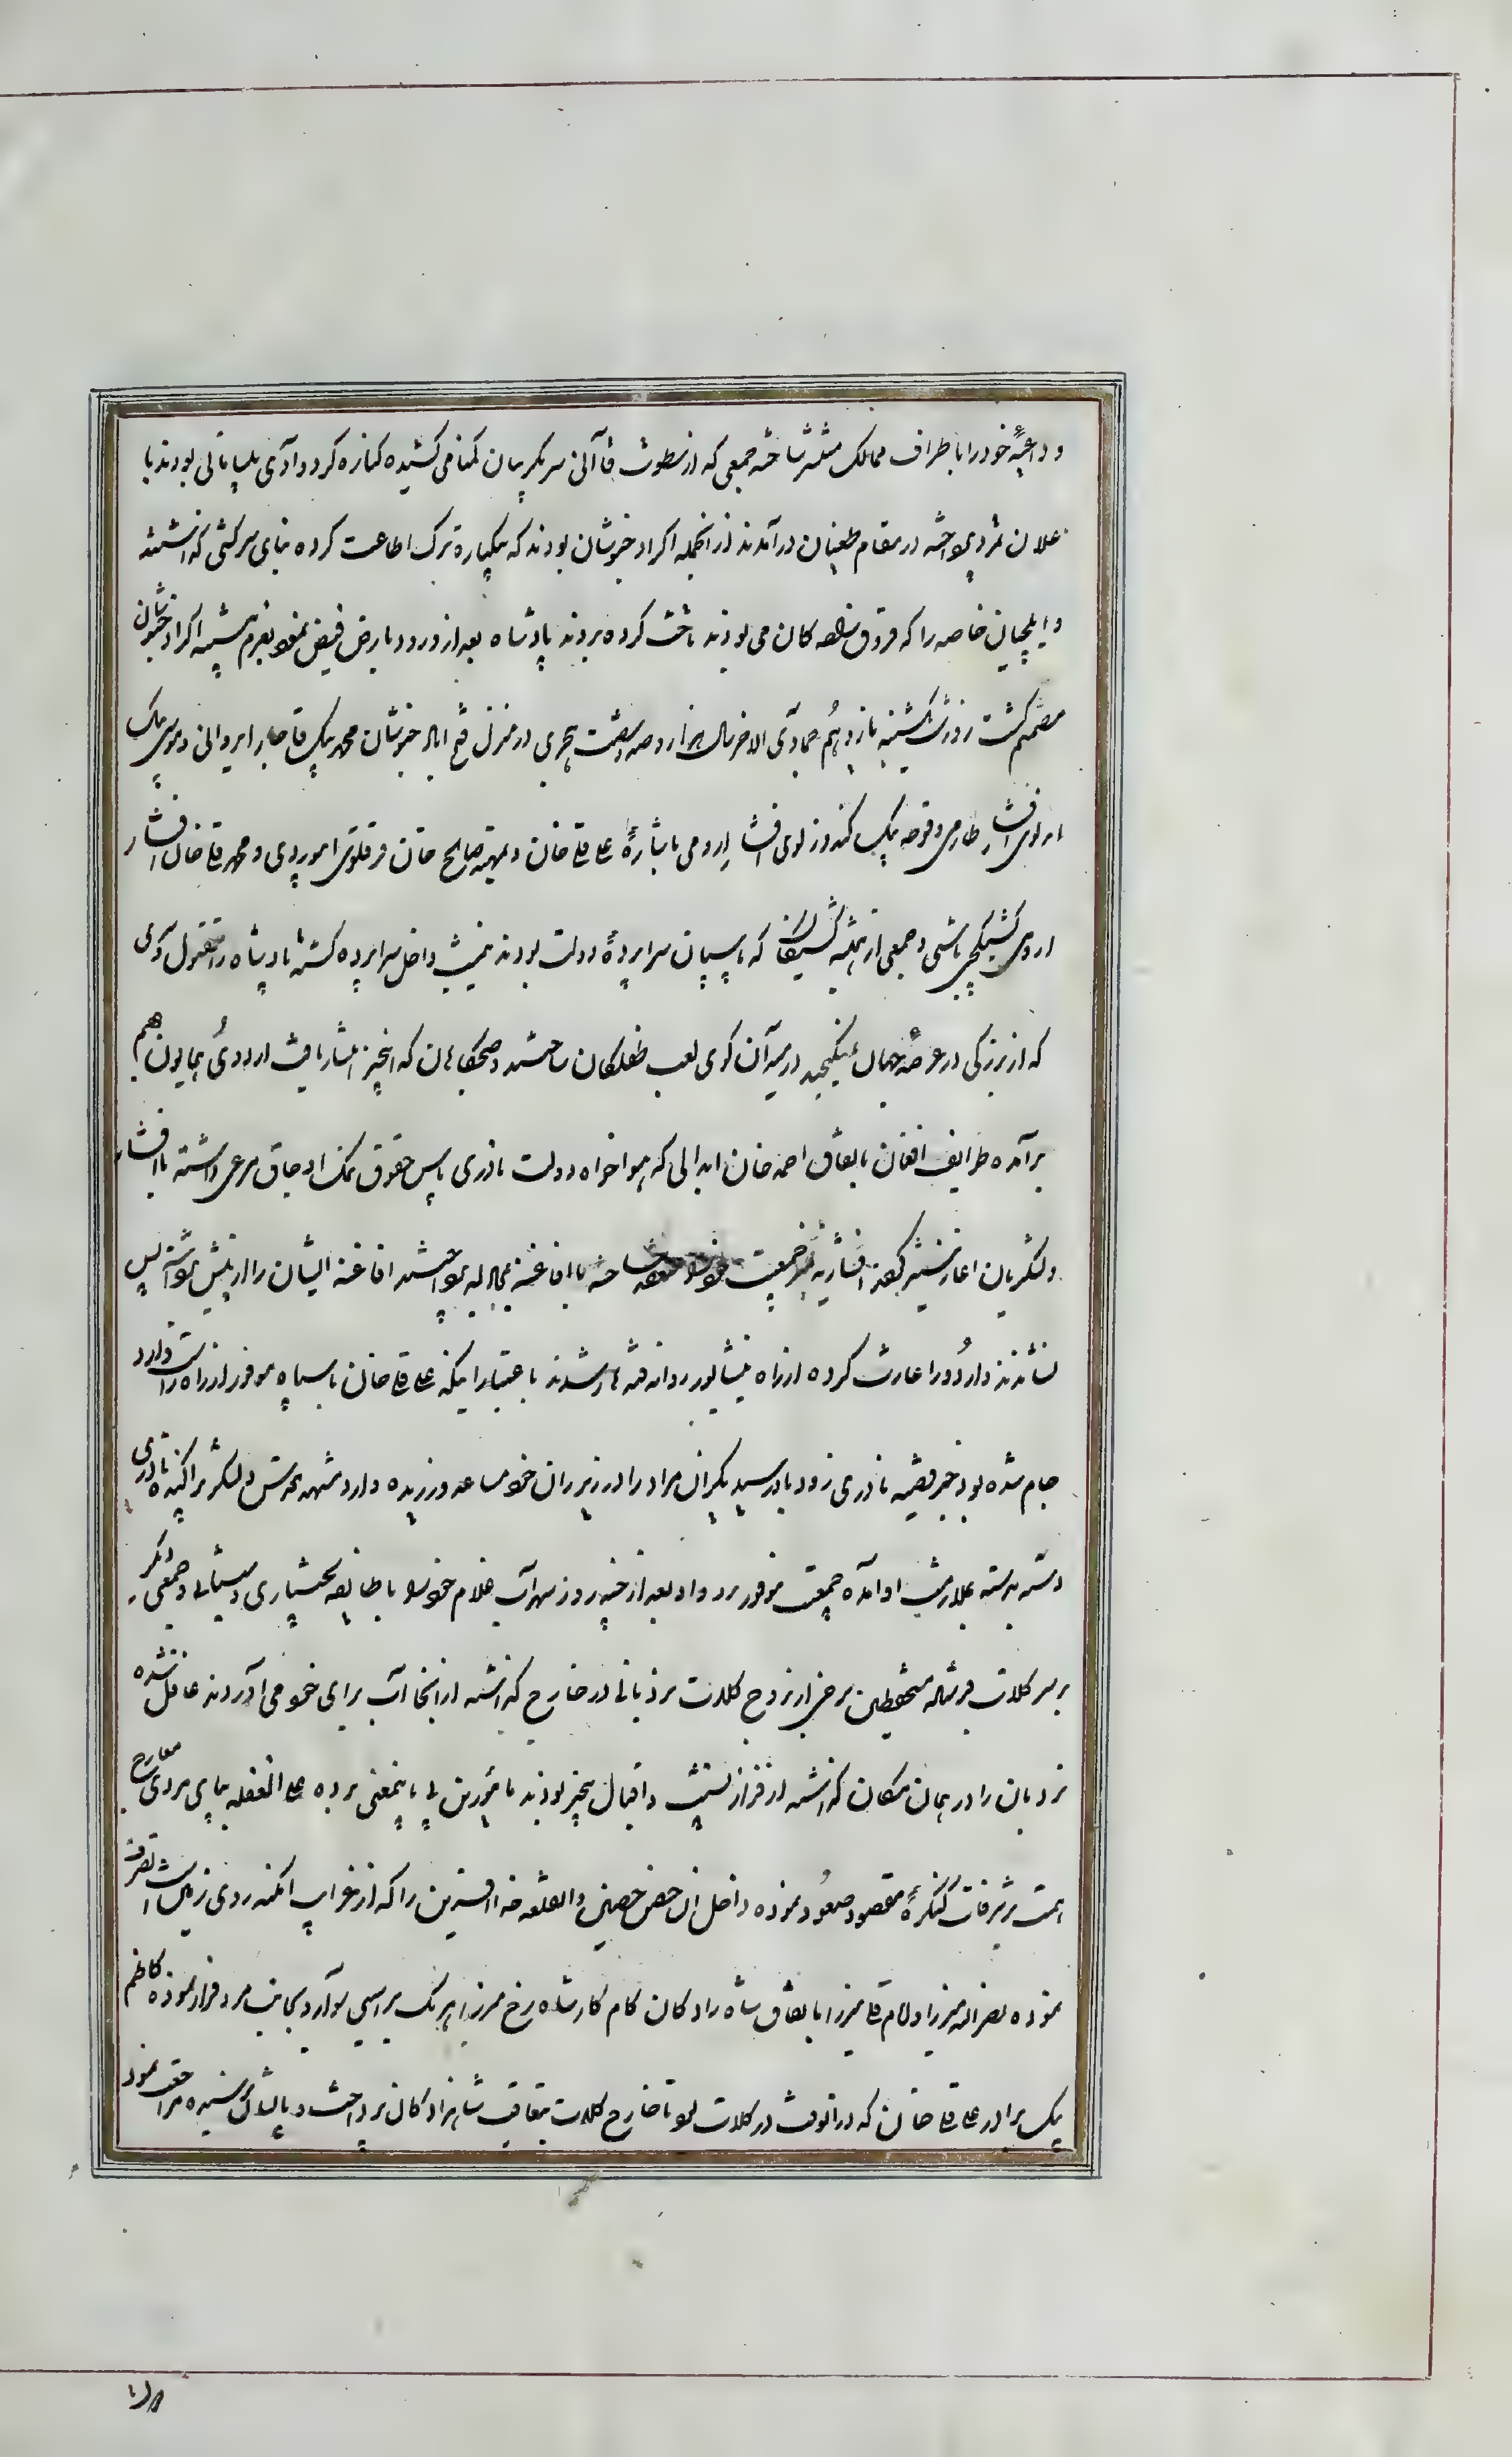 و داعیهٔ خود را باطراف ممالک منتشر ساخته جمعی که از سطوت قاآنی سر بگریبان گمنامی کشیده کناره کرد وادی بی‌سامانی بودند با
علان تمرد پرداخته در مقام طغیان درآمدند از انجمله اکراد خبوشان بودند که یکباره ترک اطاعت کرده بنای سرکشی گذاشتند
و ایلچیان خاصه را که قروق رادکان می‌بودند تاخت کرده بردند پادشاه بعد از ورود بارض فیض بنیاد بعزم تنبیه اکراد خبوشان
مصمم گشت روز شب یکشنبه یازدهم جمادی الاخر سال هزار و صد و شصت هجری در منزل فتح اباد خبوشان محمد بیک قاجار ایروانی و موسی بیک
ایرلوی افشار طارمی و قوجه بیک کندوزلوی افشار ارومی باشارهٔ علی قلی خان و تمهید صالح خان قرقلوی ابیوردی و محمد قلی خان افشار
ارومی کشیکچی باشی و جمعی از همیشه کشیکان که پاسبان سراپردهٔ دولت بودند نیمشب داخل سراپرده گشته پادشاه را مقتول و سری
که از بزرگی در عرصهٔ جهان نمیگنجید در میدان گوی لعب طفلکان ساختند و صبحگاهان که اینخبر انتشار یافت اردوی همایون بهم
برآمده طوایف افغان باتفاق احمد خان ابدالی که هواخواه دولت نادری پاس حقوق نمک اوجاق مرعی داشته با افشار
و لشکریان اغاز ستیز کرده افشاریه نیز جمعیت ساخته با افاغنه بمجادله پرداختند افاغنه ایشان را از پیش برداشته پس
نشاندند و اردو را غارت کرده از راه نیشابور روانه قندهار شدند باعتبار اینکه علی قلی خان با سپاه موفور از راه رات وارد
جام شده بود خبر قضیه نادری زود باو رسید یکران مراد را در زیر ران خود مساعد ورزیده وارد مشهد مقدس و لشکر پراکنده نادری
دسته بدسته بملازمت او آمده جمعیت موفور رو داد بعد از چند روز سهراب غلام خود را با طایفه بختیاری و سیستانی و جمعی دیگر
بر سر کلات فرستاده مستحفظین برخی از بروج کلات نردبانی در خارج گذاشته از انجا آب برای خود می‌آوردند غافل شده
نردبان را در همان مکان گذاشته از فراز و نشیب اقبال بیخبر بودند مامورین پی باینمعنی برده علی الغفله بپای مردی معارج
همت بر شرفات کنگرهٔ مقصود صعود نموده داخل ان حصن حصین و القلعه خدا افرین را که از غرایب امکنه روی زمین است تصرف
نموده نصراله میرزا و امام قلی میرزا باتفاق شاه زادکان کام کار شاه رخ میرزا هریک بر اسبی سوار و بجانب مرو فرار نموده کاظم
بیک برادر علی قلی خان که در انوقت در کلات بود تا خارج کلات بتعاقب شاهزادکان پرداخت و بایشان نرسیده مراجعت نمود